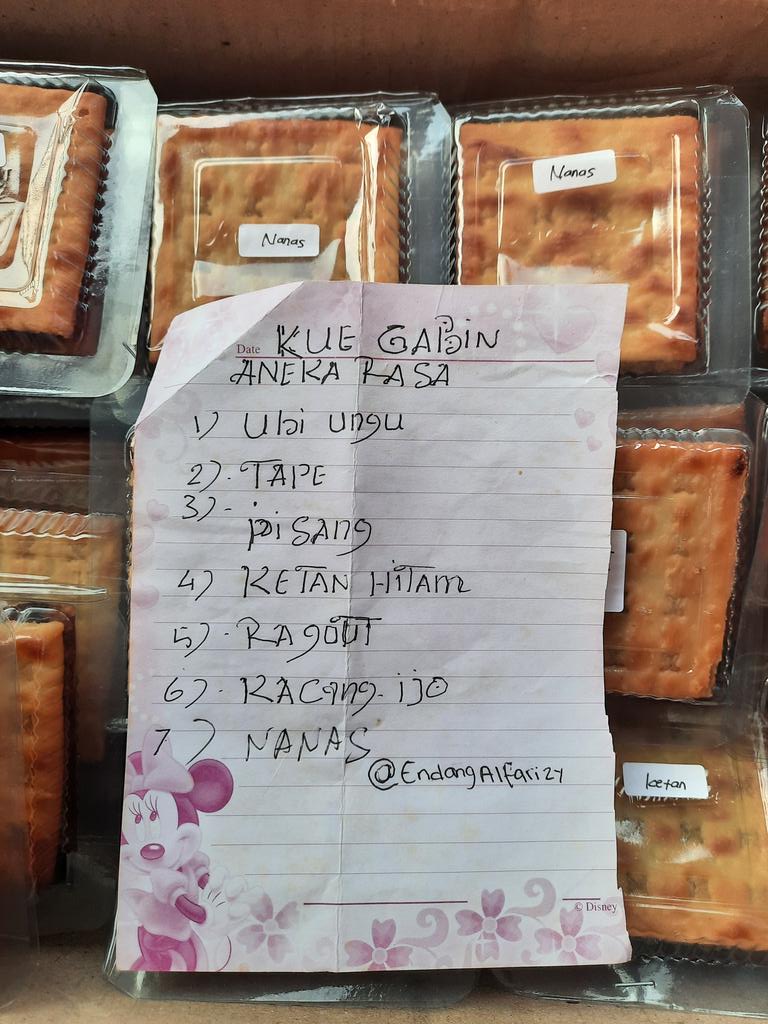 Nanas
Nanas
Date KUE GABIN
ANEKA RASA
1) Ubi ungu
2). TAPE
3) .
pisang
4) KETAN HiTAM
5). RAgOUT
6). KACang. ijo
7) NANAS
@EndangAlfarizy
ketan
© Disney